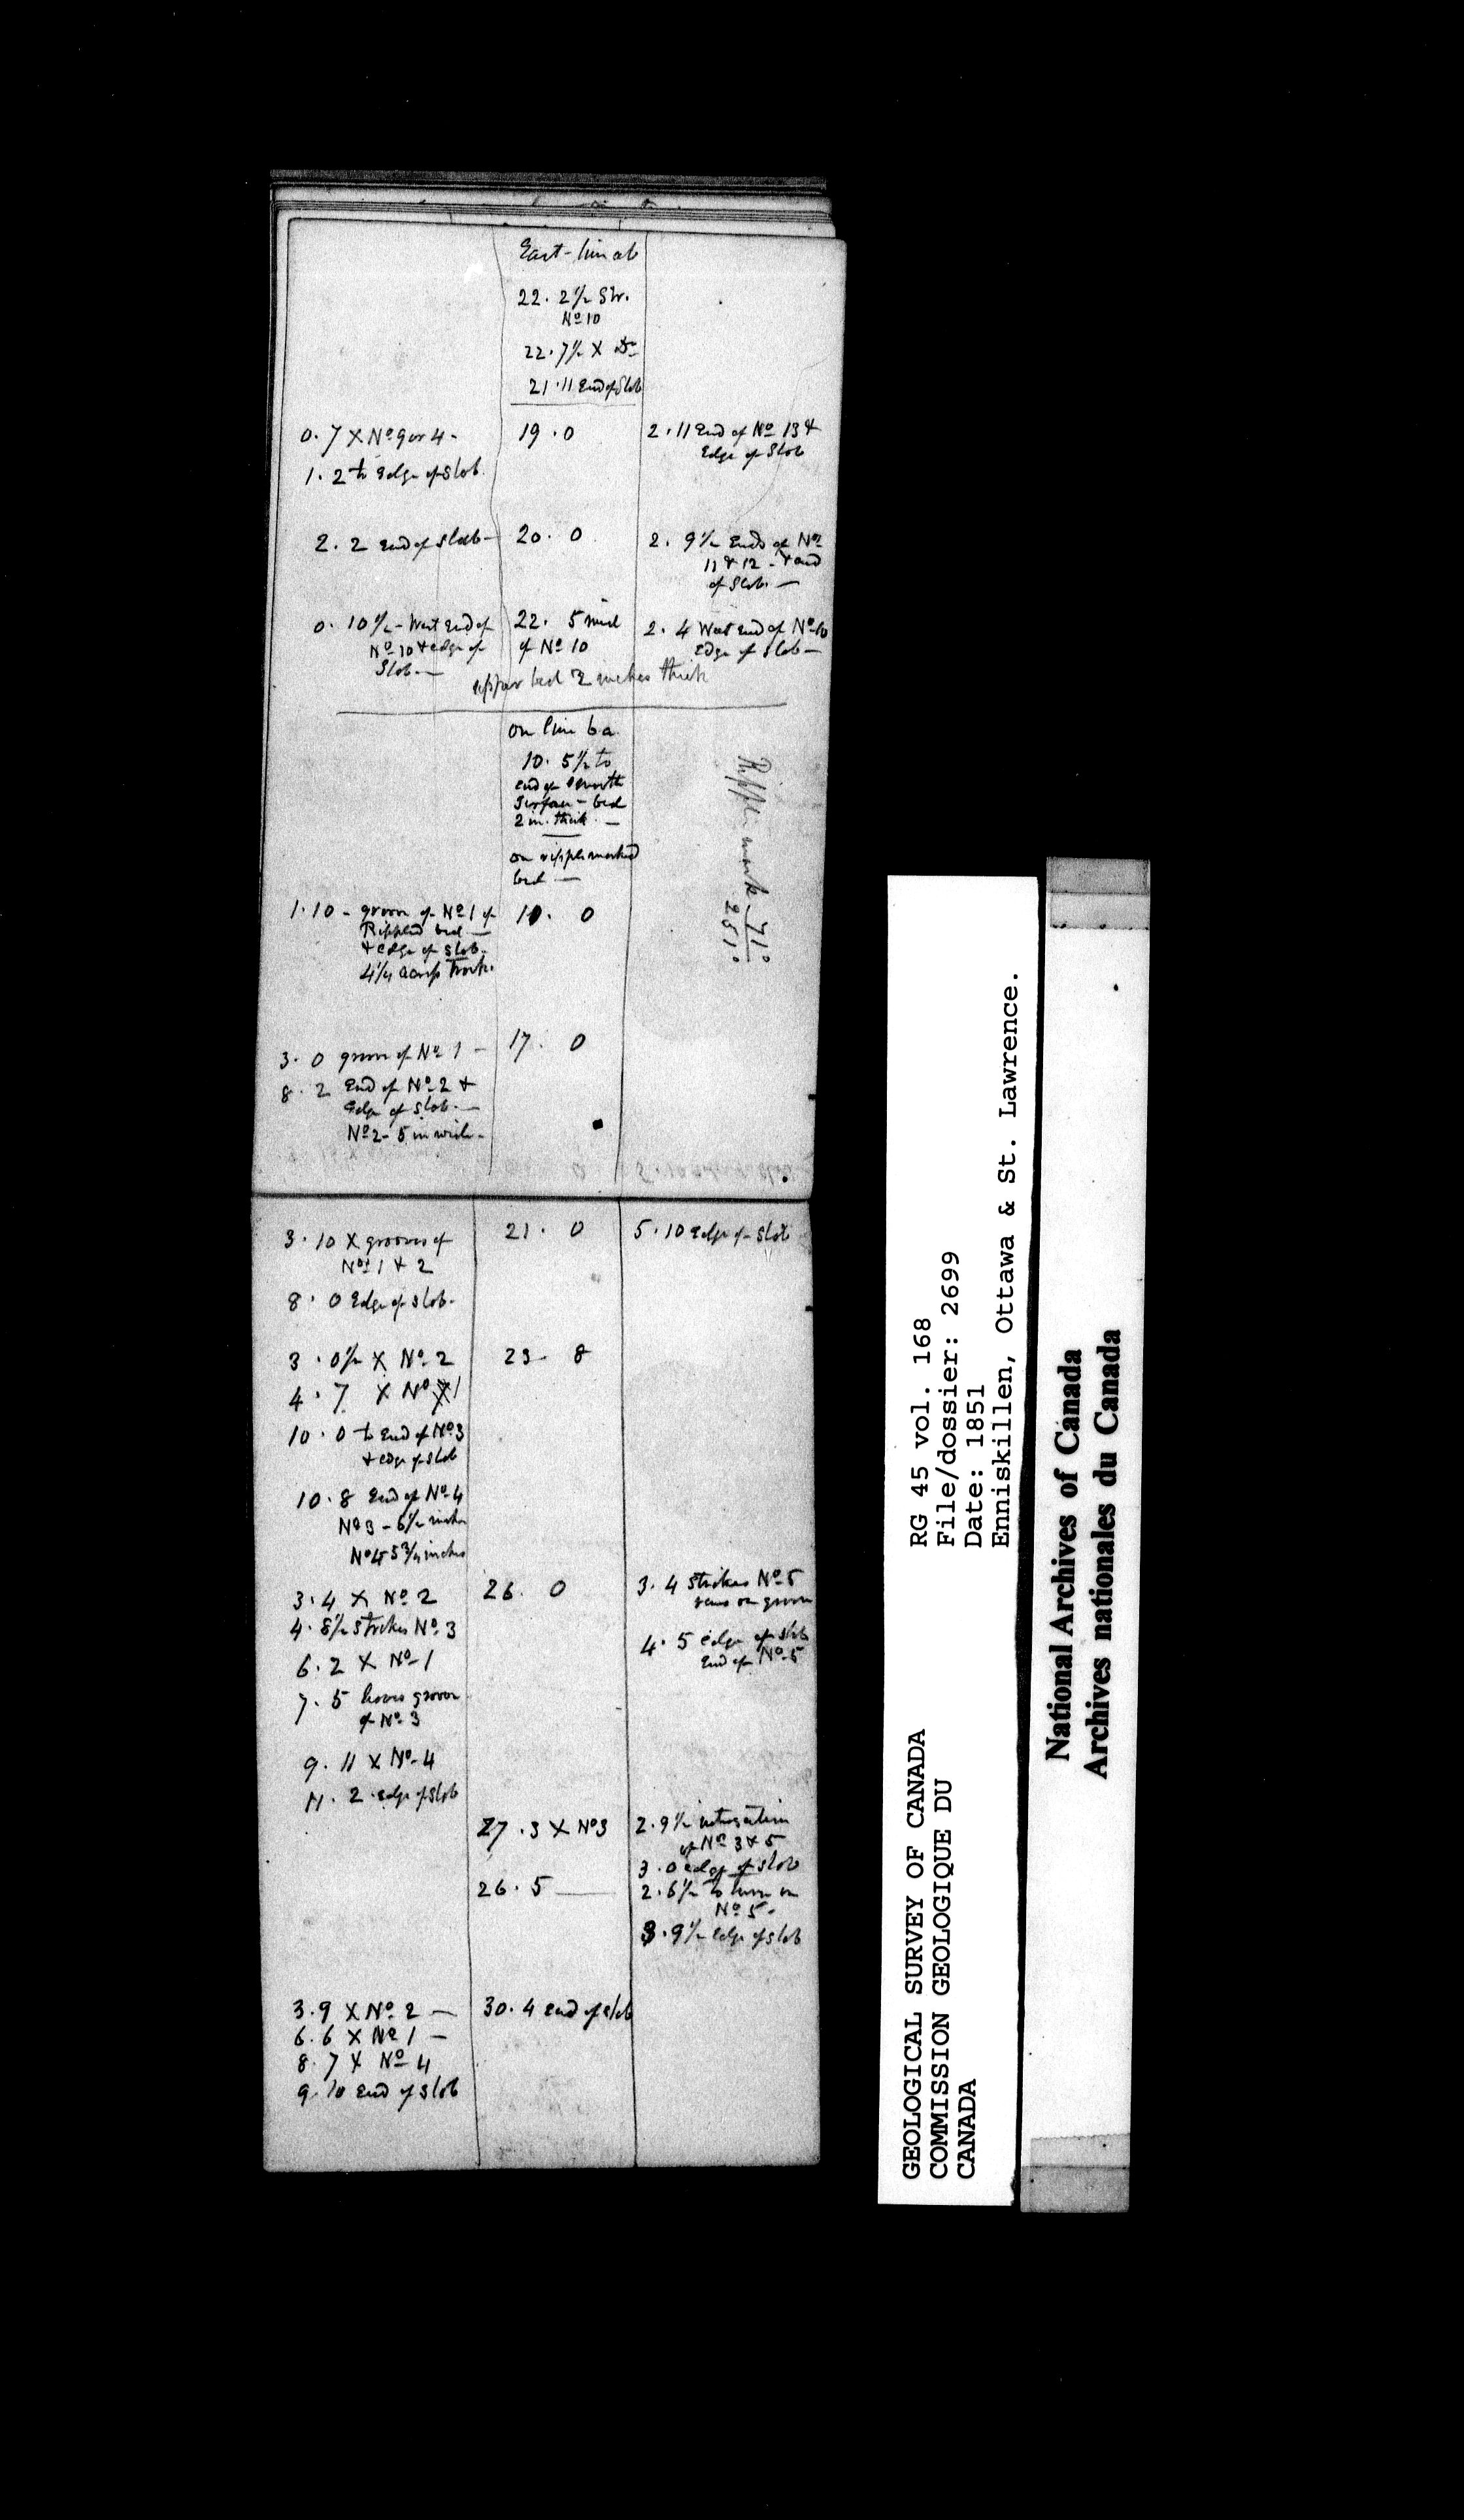 East - line ab
22. 2½ Str.
Nº 10
22. 7½ X Dº
21. 11 End of Slab
0. 7 X Nº 9 or 4 -
19. 0
2. 11 End of Nº 13 &
Edge of Slab
1. 2 to Edge of slab
2. 2 End of slab -
20. 0
2. 9½ Ends of Nº
11 & 12 - & end
of Slab. —
0. 10½ - West End of
Nº 10 & edge of
Slab. —
22. 5 mid
of Nº 10
2. 4 West End of Nº 10
Edge of slab —
upper bed 2 inches thick
on line ba
10. 5½ to
end of smooth
surface - bed
2 in. thick. —
on ripplemarked
bed —
Ripple mark 71°
251°
1. 10 - groove of Nº 1 of
Rippled bed —
& edge of slab.
4¼ across track.
10. 0
3. 0 groove of Nº 1 -
17. 0
8. 2 End of Nº 2 &
Edge of slab. —
Nº 2 - 5 in wide -
3. 10 X grooves of
Nºs 1 & 2
21. 0
5. 10 Edge of slab
8. 0 Edge of slab.
3. 0½ X Nº 2
23. 8
4. 7 X Nº 1
10. 0 to End of Nº 3
& edge of slab
10. 8 End of Nº 4
Nº 3 - 6½ inches
Nº 4 5¾ inches
3. 4 X Nº 2
26. 0
3. 4 Strikes Nº 5
runs on groove
4. 8½ strikes Nº 3
4. 5 edge of slab
End of Nº 5
6. 2 X Nº 1
7. 5 leaves groove
of Nº 3
9. 11 X Nº 4
11. 2 edge of slab
27. 3 X Nº 3
2. 9½ intersection
of Nº 3 & 5
3. 0 edge of slab
26. 5 ——
2. 6½ to
Nº 5 -
3. 9½ edge of slab
3. 9 X Nº 2 —
30. 4 end of slab
6. 6 X Nº 1 —
8. 7 X Nº 4
9. 10 End of slab
GEOLOGICAL SURVEY OF CANADA
COMMISSION GEOLOGIQUE DU
CANADA
RG 45 vol. 168
File/dossier: 2699
Date: 1851
Enniskillen, Ottawa & St. Lawrence.
National Archives of Canada
Archives nationales du Canada